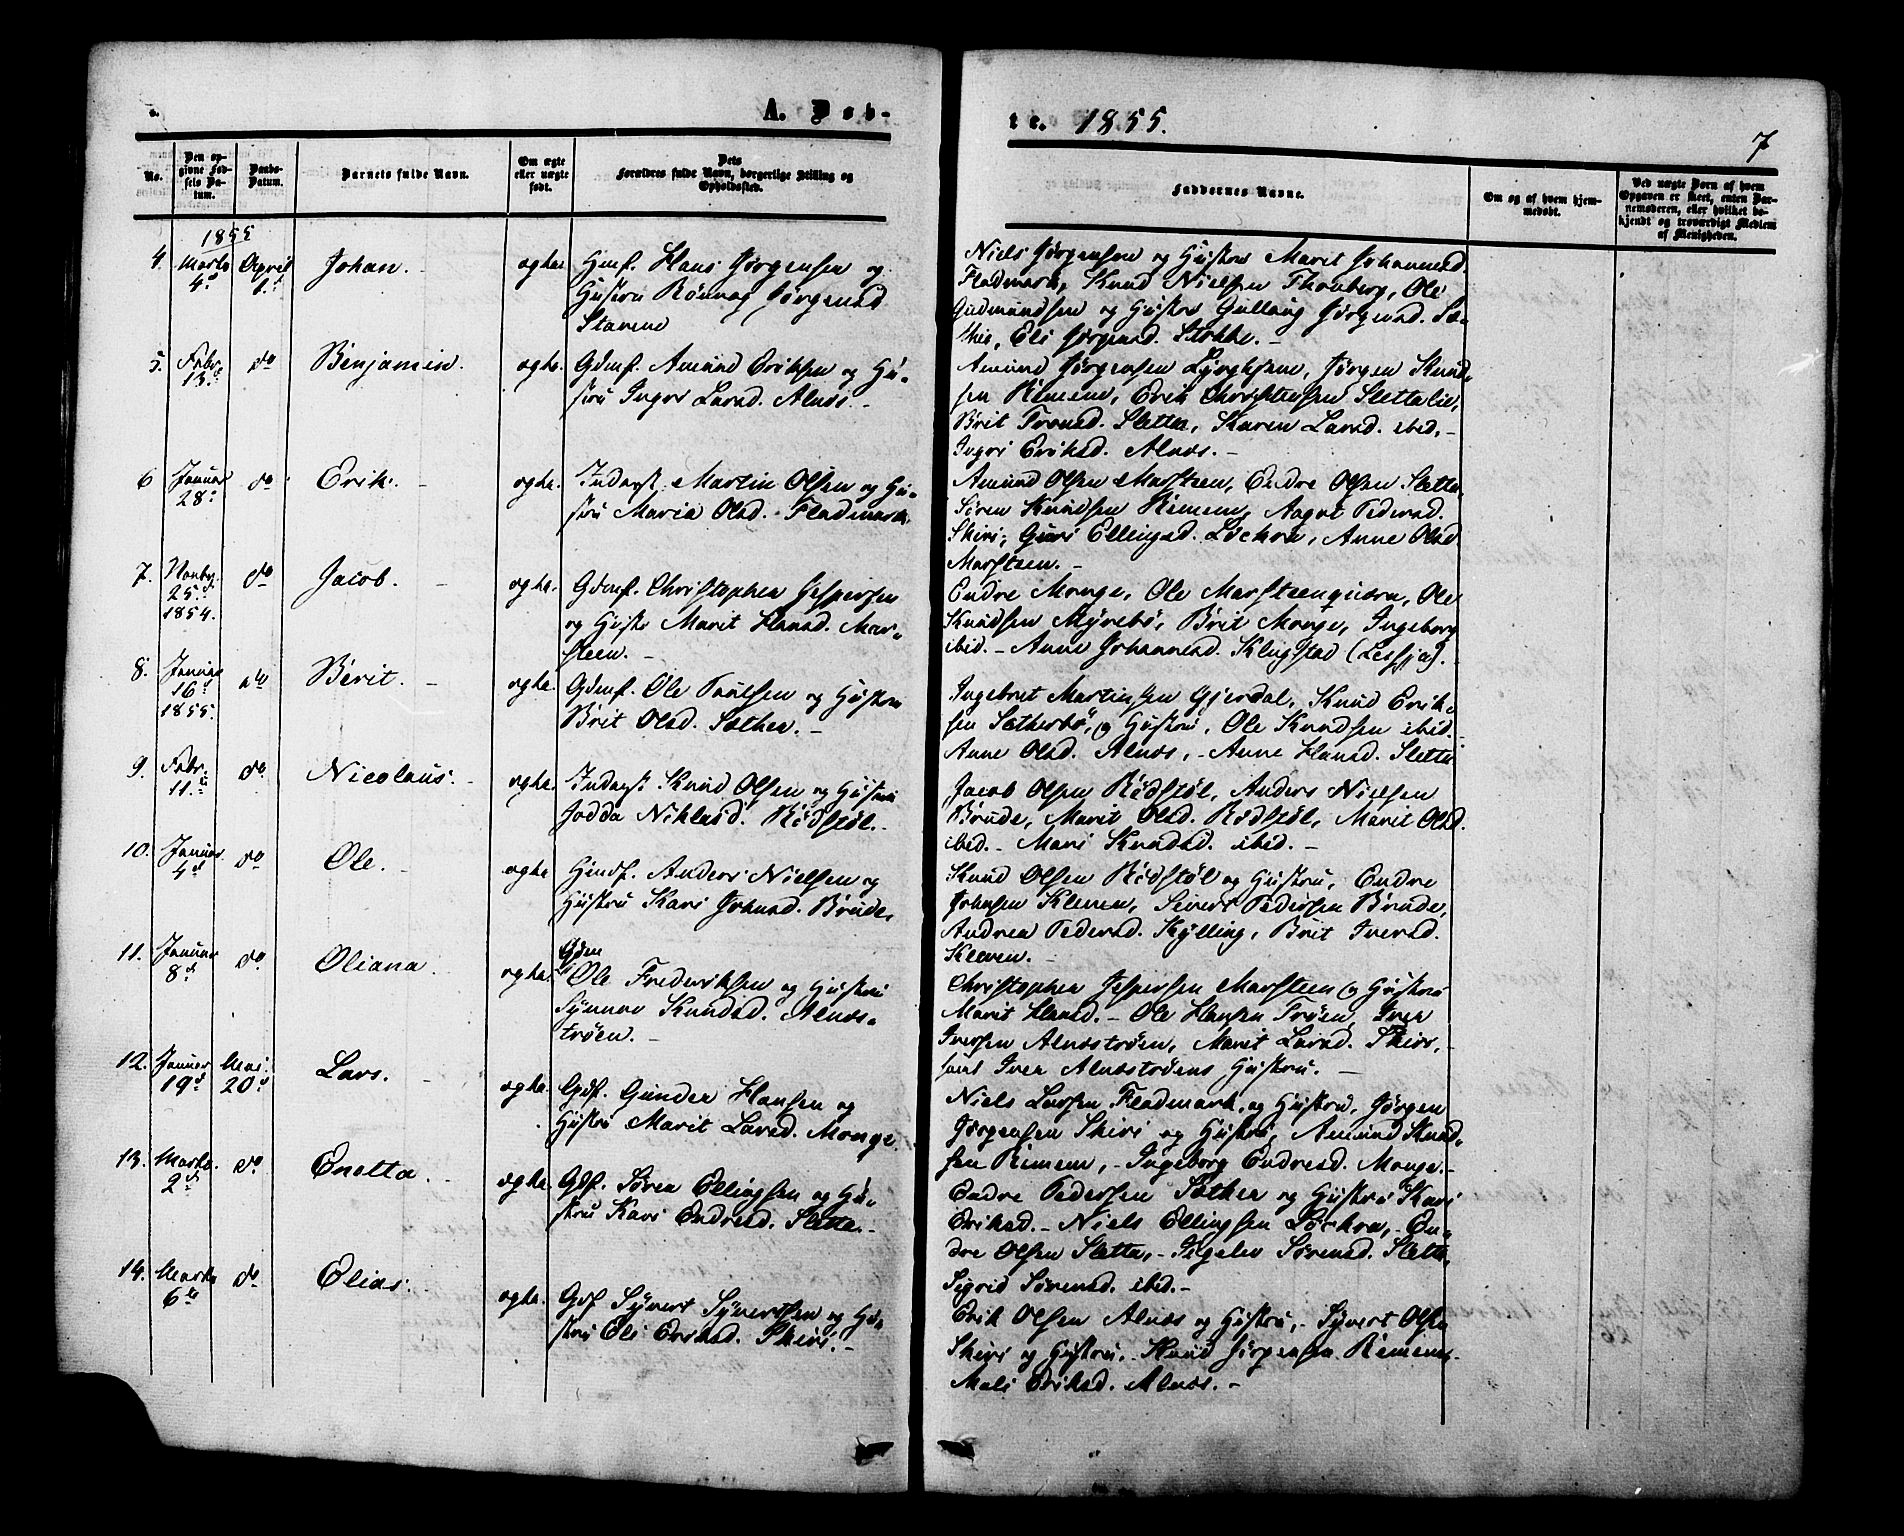 A. Døb-
te. 1855.
7
No.
Den opgivne Fødsels Datum.
Daabs-Datum.
Barnets fulde Navn.
Om ægte eller uægte født.
Dets Forældres fulde Navn, borgerlige Stilling og Opholdssted.
Faddernes Navne.
Om og af hvem hjemmedøbt.
Ved uægte Børn af hvem Opgaven er skeet, enten Barnemoderen, eller hvilket bekjendt og troværdigt Medlem af Menigheden.
1855
4. Marts 4d April 1d Johan. - ægte. Gmf. Hans Jørgensen og
Hustru Rönnog Jørgensd
Stavene
Niels Jørgensen og Hustru Marit Johannesd.
Fladmark, Knud Nielsen Thonberg, Ole
Gudmundsen og Hustru Gullaug Jørgensd. Sø-
Eli Jørgensd. Stokke. -
5. Febr. 13d do Benjamin. ægte. Gdmf. Amund Eriksen og Hu-
stru Ingri Larsd. Alnæs -
Amund Jørgensen Lyngheim, Jørgen Knud-
sen Remmem, Erik Christensen Slettelie,
Brit Tronsd. Sletta, Karen Larsd. ibid, -
Ingri Eriksd. Alnæs. -
6 Januar 28d do Erik. - ægte. Indgst. Martin Olsen og Hu-
stru Maria Olsd. Fladmark.
Amund Olsen Marsteen, Endre Olsen Sletta,
Søren Knudsen Remmem, Aagot Pedersd.
Skiri, Guri Ellingsd. Löckra, Anne Olsd
Marsteen. -
7. Novbr. 25d 1854. do Jacob. - ægte. Gdmf. Christopher Jespersen
og Hustr Marit Hansd. Mar-
steen. -
Endre Monge, Ole Marsteenquærn, Ole
Knudsen Myrebø, Brit Monge, Ingeborg
ibid. - Anne Johannesd. Klugstad (Lessja). -
8. Januar 16d 1855. do Berit. - ægte. Gdmf. Ole Poulsen og Hustru
Brit Olsd. Sæther. -
Ingebret Martinsen Gjerdal, Knud Erik-
sen Sætherbø, og Hustru, Ole Knudsen ibid.
Anne Olsd. Alnæs, - Anne Hansd. Sletta
9. Febr. 11te do Nicolaus. - ægte. Indgst. Knud Olsen og Hustru
Jodda Niklasd. Rödstöl. -
Jacob Olsen Rödstöl, Anders Nielsen
Brude, Marit Olsd. Rödstöl, Marit Olsd.
ibid. - Mari Knudsd. ibid. -
10. Januar 4d do Ole. - ægte Gmdf. Anders Nielsen og
Hustru Kari Johnsd. Brude.
Knud Olsen Rödstöl og Hustru, Endre
Johnsen Kleven, Sivert Pedersen Brude,
Andrea Pedersd. Kylling, Brit Iversd.
Kleven. -
11. Januar 8d do Oliana. ægte. Gdm
Ole Frederiksen og Hustru
Synnøv Knudsd. Alnæs-
trøen. -
Christopher Jespersen Marsteen og Hustru
Marit Hansd. - Ole Hansen Trøen, Iver
Iversen Alnæstrøen, Marit Larsd. Skiri, -
samt Iver Alnæstrøens Hustru. -
12. Januar 19d Mai 20d Lars. - ægte. Gdf. Gunder Hansen og
Hustru Marit Larsd. Monge
Niels Larsen Fladmark, og Hustru, Jørgen
Jørgensen Skiri og Hustru, Amund Knud-
sen Remmem, - Ingeborg Endresd. Monge. -
13. Marts. 2d do Enolta. ægte. Gdf. Søren Ellingsen og Hu-
stru Kari Endresd. Sletta. -
Endre Pedersen Sæther og Hustru Kari
Eriksd. - Niels Ellingsen Löckra, - En-
dre Olsen Sletta, - Ingelev Sørensd. Sletta,
Sigrid Sørensd. ibid. -
14. Marts 6te do Elias. ægte. Gdf Syvert Syvertsen og Hu-
stru Eli Eriksd. Skiri. -
Erik Olsen Alnæs og Hustru, - Syvert Olsen
Skiri og Hustru, - Knud Jørgensen Remmem -
Mali Eriksd. Alnæs. -